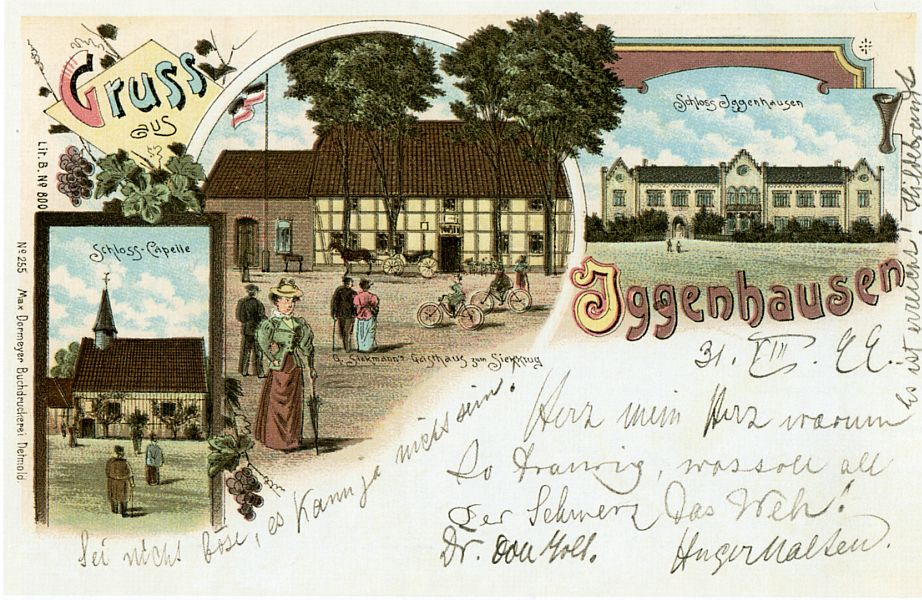 Gruss
aus
Lit. B. No 800
Schloss-Capelle
No 255 Max Dormeyer Buchdruckerei Detmold.
G. Siekmann's Gasthaus zum Siekkrug
Schloss Iggenhausen
Iggenhausen
31. VIII.
Herz mein Herz warum
so traurig, was soll all
der Schmerz das Weh!
Dr. von
Sei nicht böse, es kann ja nicht sein.
Es ist